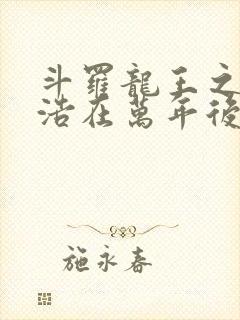 斗羅龍王之
浩在萬年後
施永春